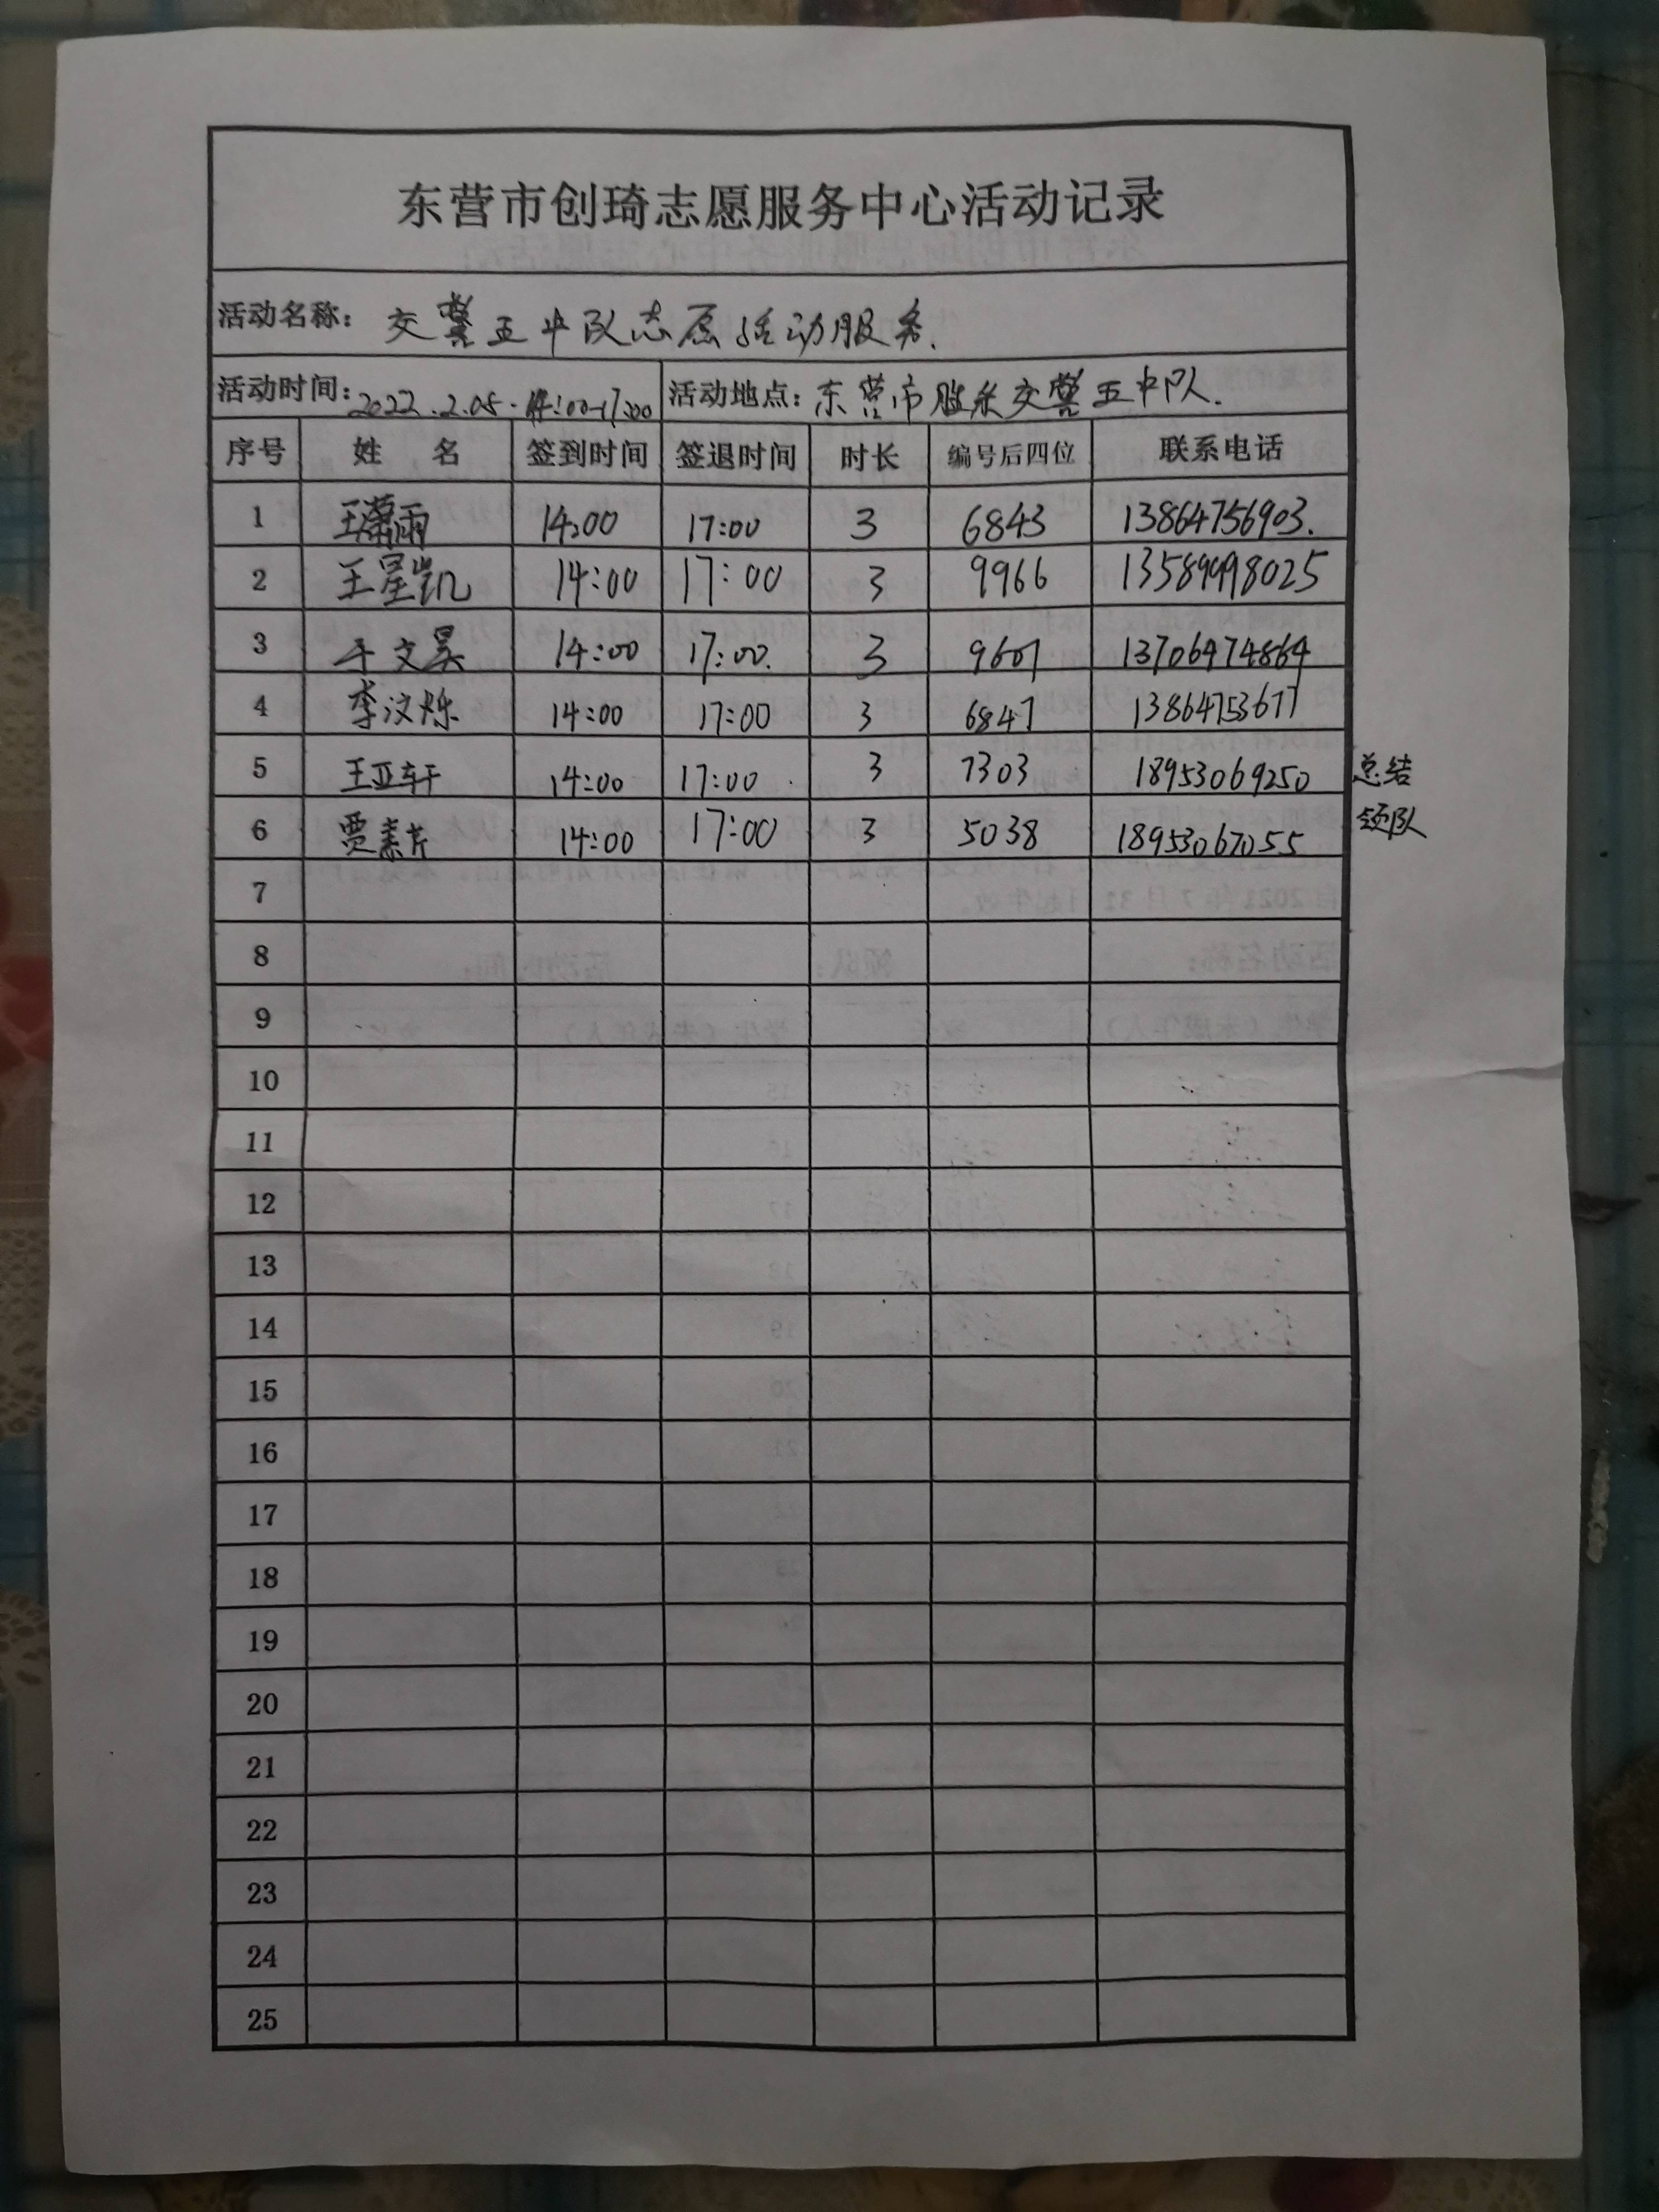 东营市创琦志愿服务中心活动记录
活动名称: 交警五中队志愿活动服务.
活动时间: 2022.2.05.14:00-17:00 活动地点: 东营市胜东交警五中队.
序号 姓 名 签到时间 签退时间 时长 编号后四位 联系电话
1 王潇雨 14:00 17:00 3 6843 13864756903.
2 王星凯 14:00 17:00 3 9966 13589998025
3 于文昊 14:00 17:00. 3 9607 13706474864
4 李汶烁 14:00 17:00 3 6847 13864753677
5 王亚轩 14:00 17:00 3 7303 18953069250 总结
6 贾素芹 14:00 17:00 3 5038 18953067055 领队
7
8
9
10
11
12
13
14
15
16
17
18
19
20
21
22
23
24
25